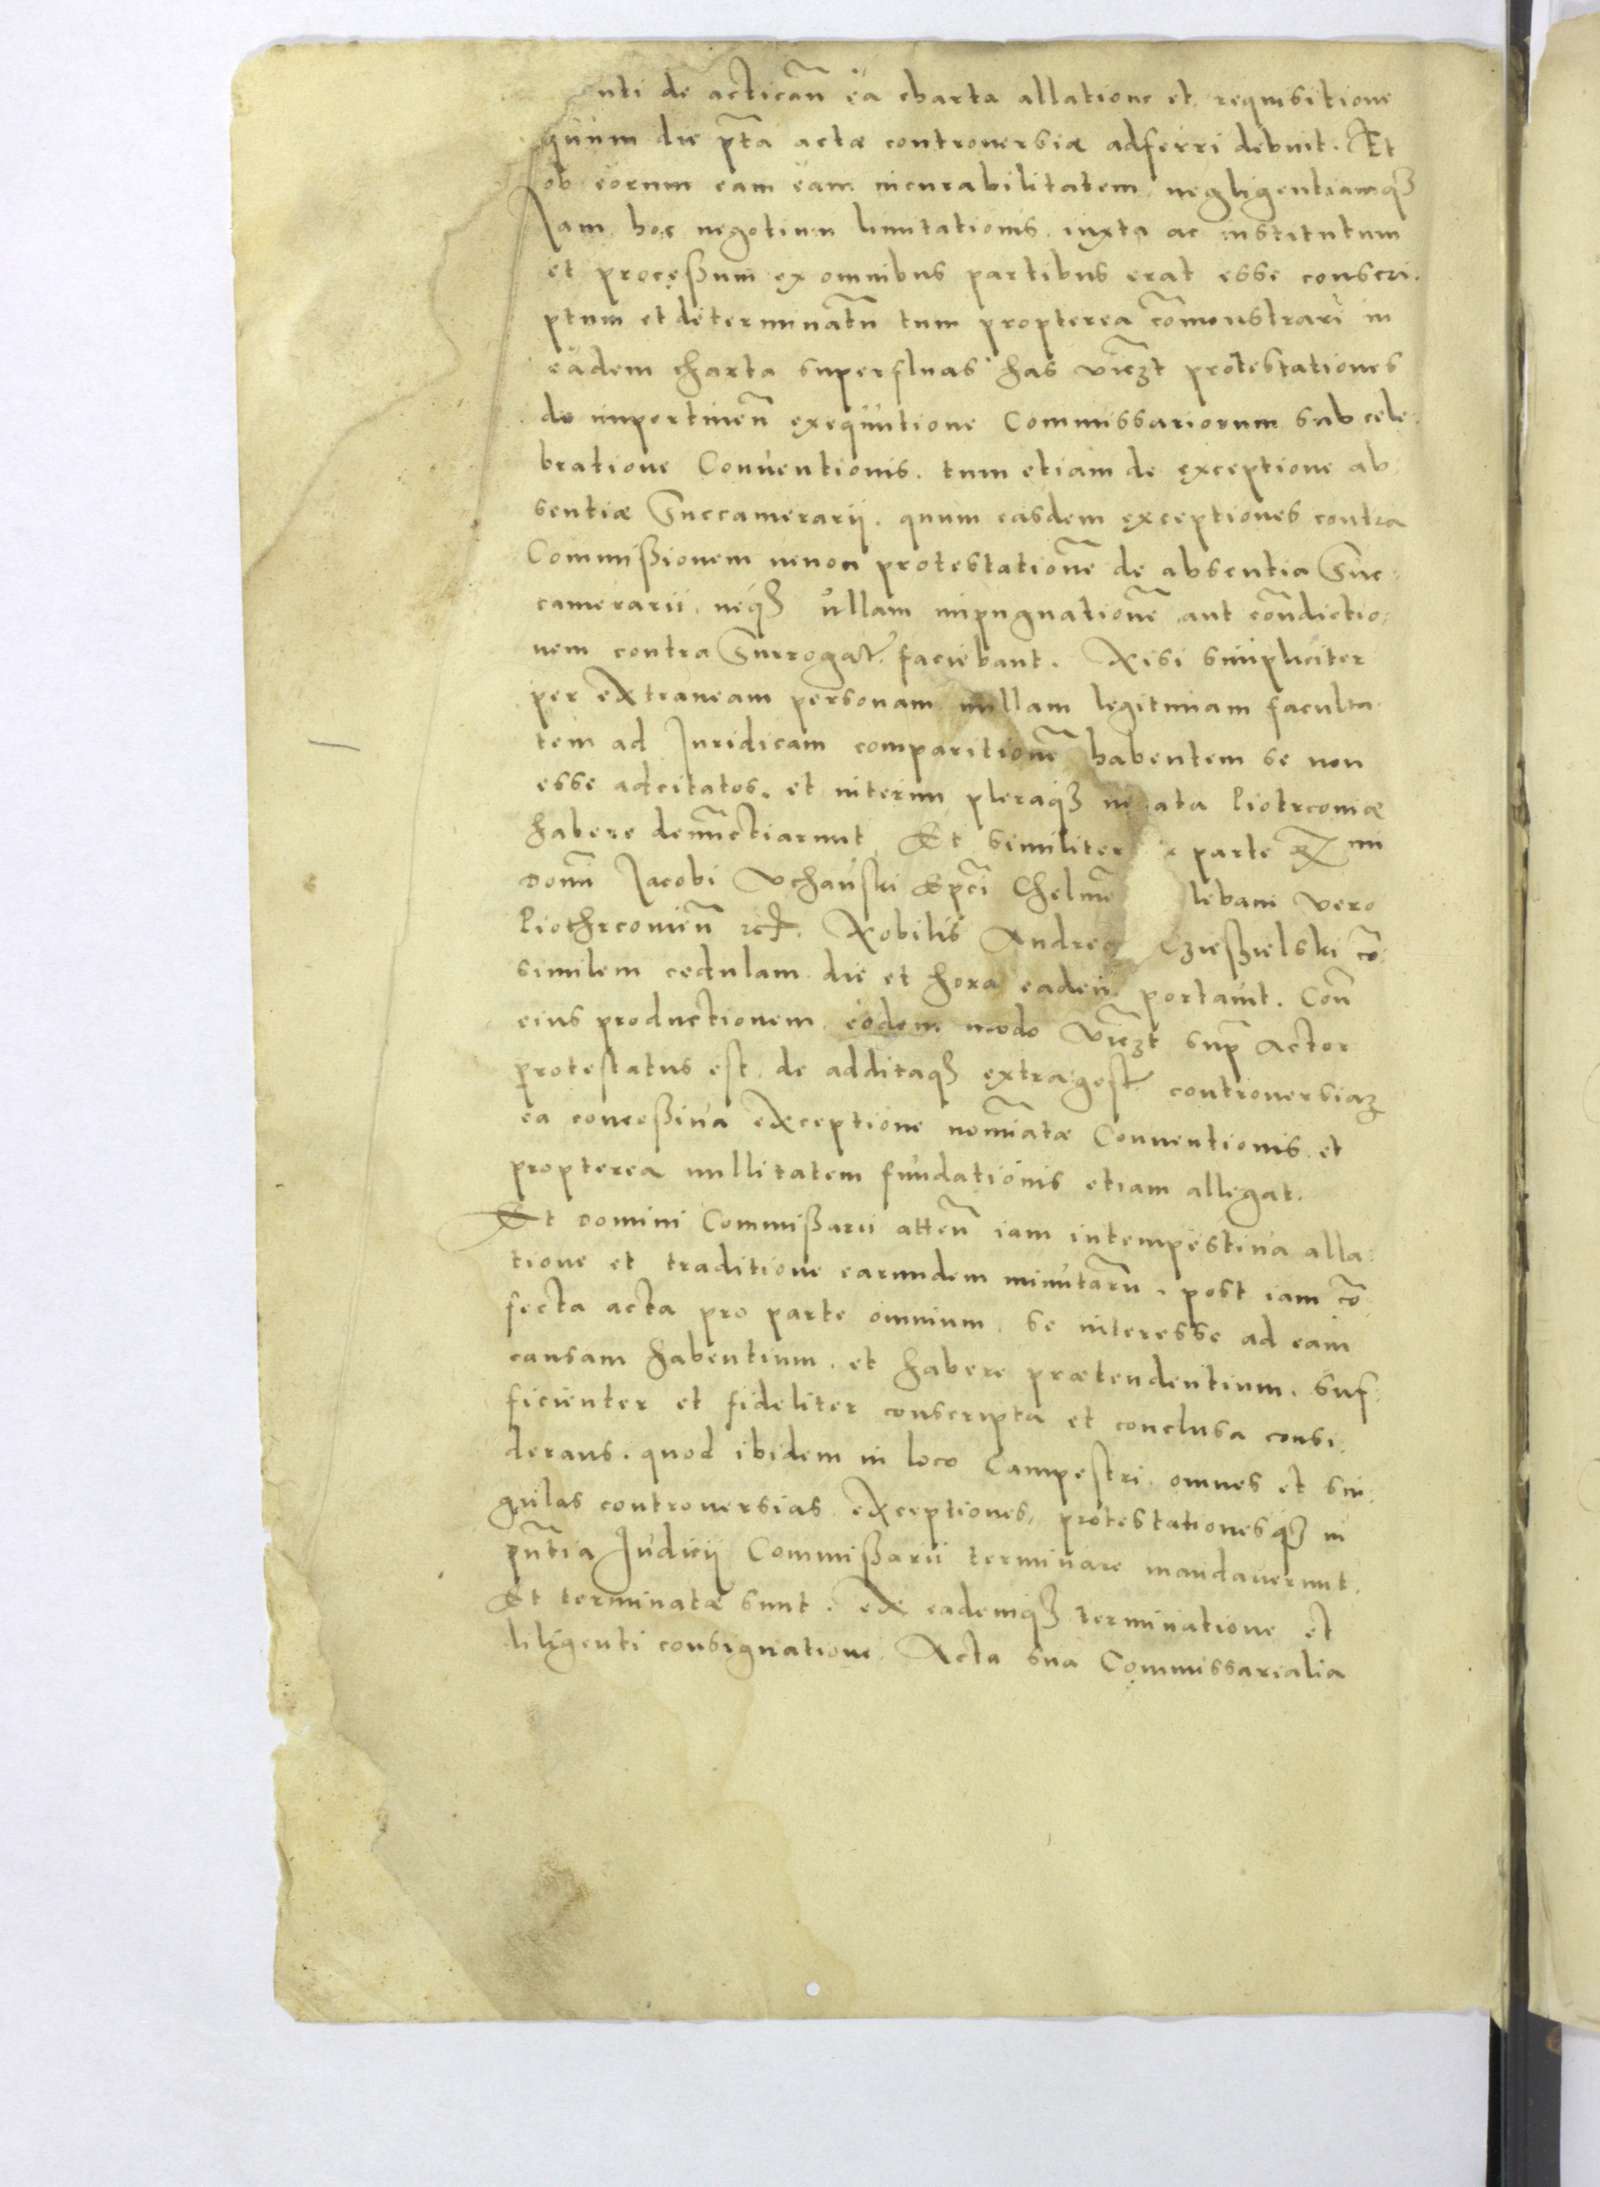 nti de actican̄ ea charta allatione et requisitione
quum die p̄ta actæ controuersiæ adferri debuit. Et
ob eorum eam eam incurabilitatem negligentiamqȝ
Jam hoc negotium limitationis iuxta ac institutum
et proceßum ex omnibus partibus erat esse conscri.
ptum et determinatū tum propterea com̄onstrari in
eadem charta superfluas has vicȝt protestationes
de impertinen̄ exequutione Commissariorum sub cele.
bratione Conuentionis. tum etiam de exceptione ab
sentiæ Succamerarij. quum easdem exceptiones contra
Commißionem nenon protestationē de absentia Suc:
camerarii, neqȝ ullam impugnationē aut con̄dictio:
nem contra Surrogat. faciebant. Nisi simpliciter
per extraneam personam nullam legitimam faculta
tem ad Juridicam comparitionē habentem se non
esse adcitatos. et interim pleraqȝ ata Piotrcouiæ
habere denun̄ctiarunt Et similiter parte mi
Domi Jacobi Vchanski Ep̄ci Chelmē lebani vero
Piothrcouien̄ Nobilis Andreas Czießielski cō
similem cedulam die et hora eadem portauit. Con̄
eius productionem eodem modo vicȝt sup̄ Actor
protestatus est. de additaqȝ extragest controuersiaȝ
ea conceßiua exceptione nomīatæ Conuentionis et
propterea nullitatem fundationis etiam allegat.
Et Domini Commißarii atten̄ iam intempestiua alla:
tione et traditione earundem minutarū. post iam cō
fecta acta pro parte omnium. se interesse ad eam
causam habentium. et habere prætendentium. suf:
ficienter et fideliter conscripta et conclusa consi.
derans. quod ibidem in loco Campestri omnes et sin:
gulas controuersias exceptiones, protestationesqȝ in
pn̄tia Judicij Commißarii terminare mandauerunt.
Et terminatæ sunt. ex eademqȝ terminatione et
diligenti consignatione Acta sua Commissarialia